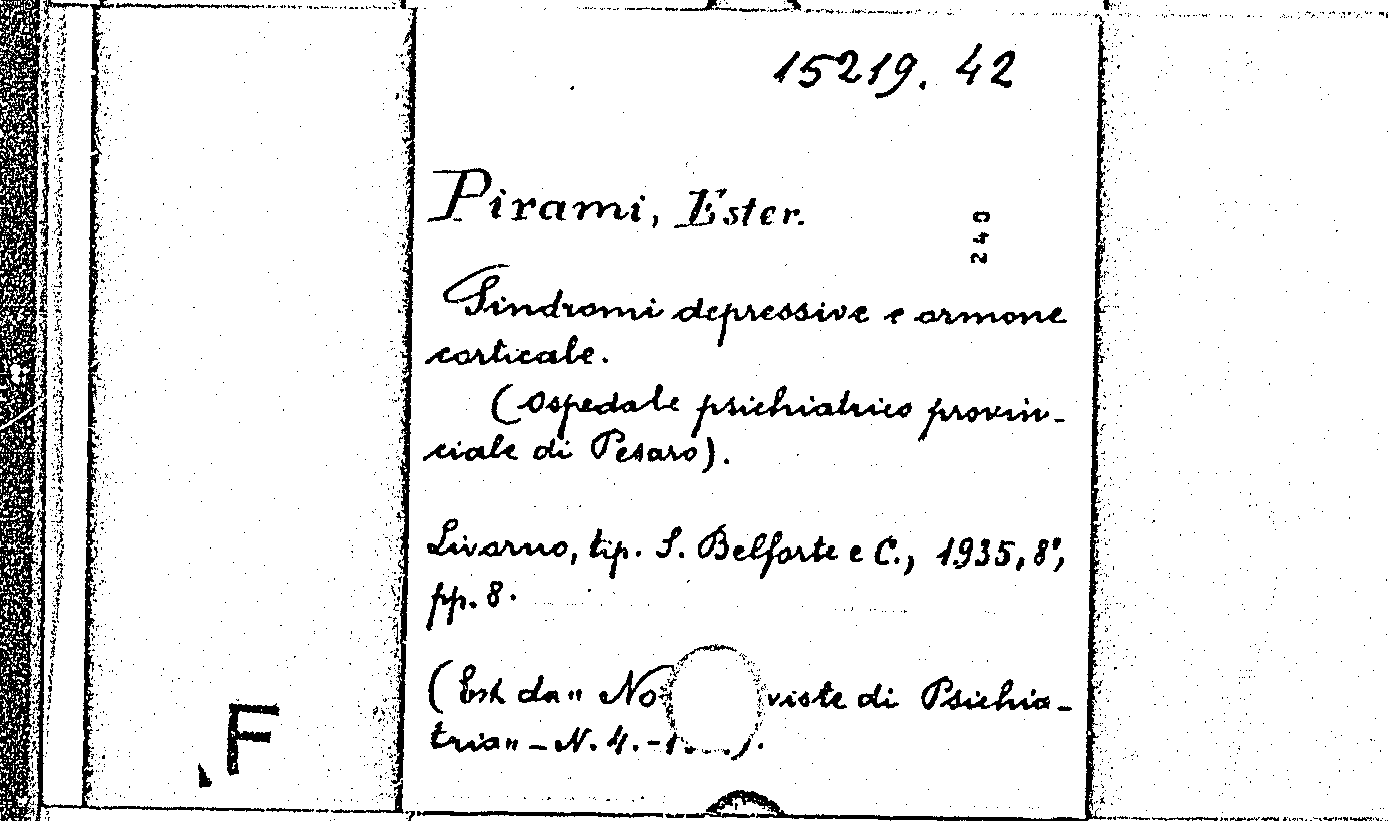 15219. 42
Pirami, Ester.
240
Sindromi depressive e ormone
corticale.
(Ospedale psichiatrico provin-
ciale di Pesaro).
Livorno, tip. S. Belforte e C., 1935, 8°,
pp. 8.
(Est. da „ No viste di Psichia-
tria „ - N. 4. -
F